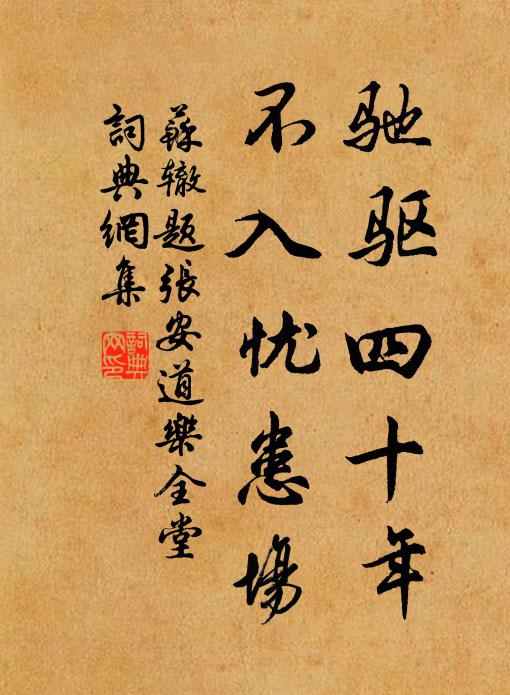 驰驱四十年
不入忧患場
蘇辙题張安道樂全堂
詞典網集
詞典网印